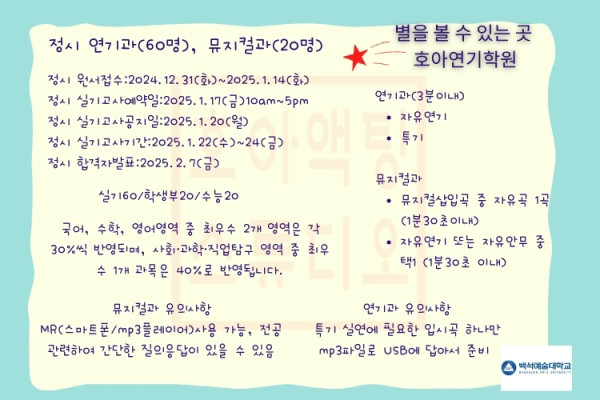 별을 볼 수 있는 곳
호아연기학원
정시 연기과(60명), 뮤지컬과(20명)
정시 원서접수:2024.12.31(화)~2025.1.14(화)
정시 실기고사예약일:2025.1.17(금)10am~5pm
정시 실기고사공지일:2025.1.20(월)
정시 실기고사기간:2025.1.22(수)~24(금)
정시 합격자발표:2025.2.7(금)
실기60/학생부20/수능20
국어, 수학, 영어영역 중 최우수 2개 영역은 각
30%씩 반영되며, 사회·과학·직업탐구 영역 중 최우
수 1개 과목은 40%로 반영됩니다.
연기과(3분이내)
• 자유연기
• 특기
뮤지컬과
• 뮤지컬삽입곡 중 자유곡 1곡
(1분30초이내)
• 자유연기 또는 자유안무 중
택1 (1분30초 이내)
뮤지컬과 유의사항
MR(스마트폰/mp3플레이어)사용 가능, 전공
관련하여 간단한 질의응답이 있을 수 있음
연기과 유의사항
특기 실연에 필요한 입시곡 하나만
mp3파일로 USB에 담아서 준비
백석예술대학교
BAEKSEOK ARTS UNIVERSITY